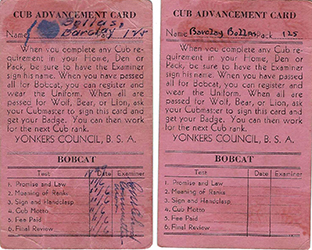 CUB ADVANCEMENT CARD
Name Barclay 125
When you complete any Cub re-
quirement in your Home, Den or
Pack, be sure to have the Examiner
sign his name. When you have passed
all for Bobcat, you can register and
wear the Uniform. When all are
passed for Wolf, Bear, or Lion, ask
your Cubmaster to sign this card and
get your Badge. You can then work
for the next Cub rank.
YONKERS COUNCIL, B. S. A.
BOBCAT
Test Examiner
1. Promise and Law
2. Meaning of Ranks
3. Sign and Handclasp
4. Cub Motto
5. Fee Paid
6. Final Review
CUB ADVANCEMENT CARD
Name Barclay Pack 125
When you complete any Cub re-
quirement in your Home, Den or
Pack, be sure to have the Examiner
sign his name. When you have passed
all for Bobcat, you can register and
wear the Uniform. When all are
passed for Wolf, Bear, or Lion, ask
your Cubmaster to sign this card and
get your Badge. You can then work
for the next Cub rank.
YONKERS COUNCIL, B. S. A.
BOBCAT
Test Date Examiner
1. Promise and Law
2. Meaning of Ranks
3. Sign and Handclasp
4. Cub Motto
5. Fee Paid
6. Final Review